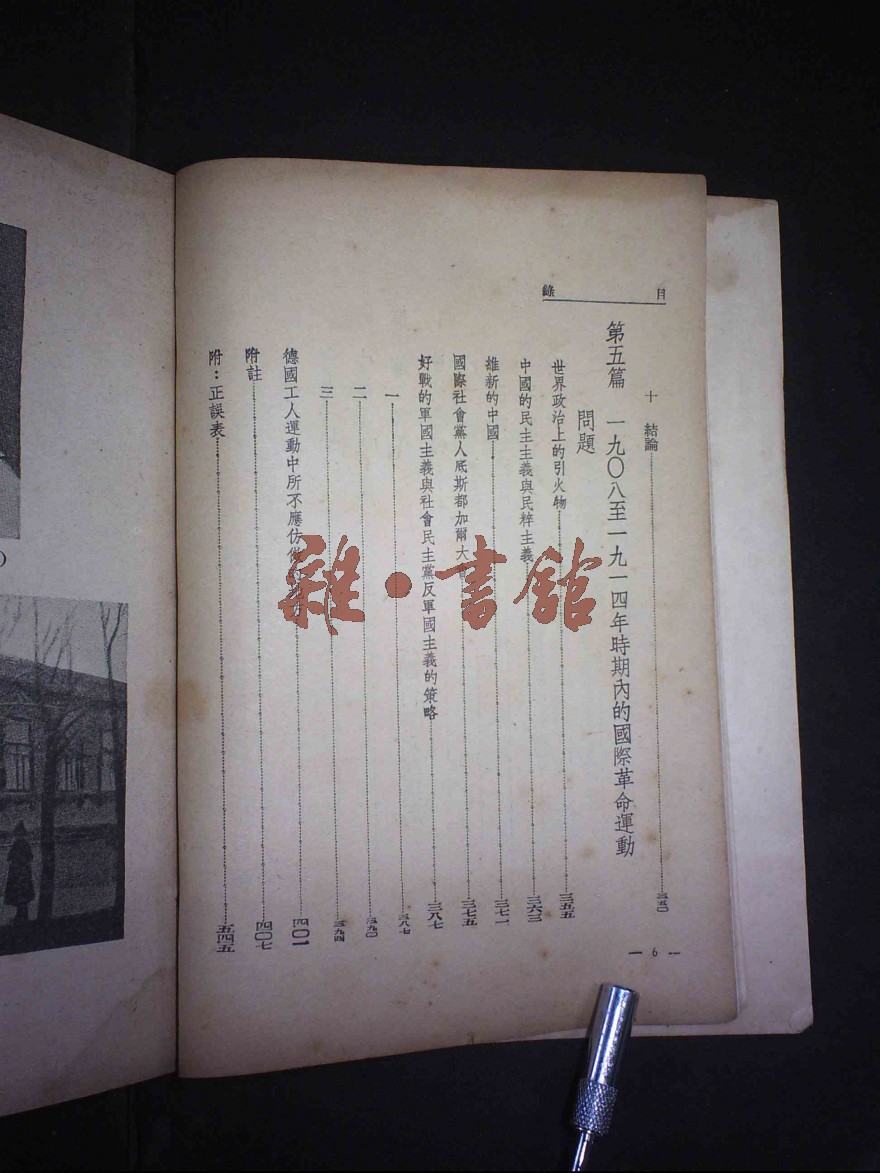 目錄
十 結論……三五〇
第五篇 一九〇八至一九一四年時期內的國際革命運動
問題
世界政治上的引火物……三五五
中國的民主主義與民粹主義……三六三
維新的中國……三七一
國際社會黨人底斯都加爾大……三七五
好戰的軍國主義與社會民主黨反軍國主義的策略……三八七
一……三八七
二……三九〇
三……三九四
德國工人運動中所不應仿……四〇一
附註……四〇七
附：正誤表……五四五
— 6 —
雜·書館